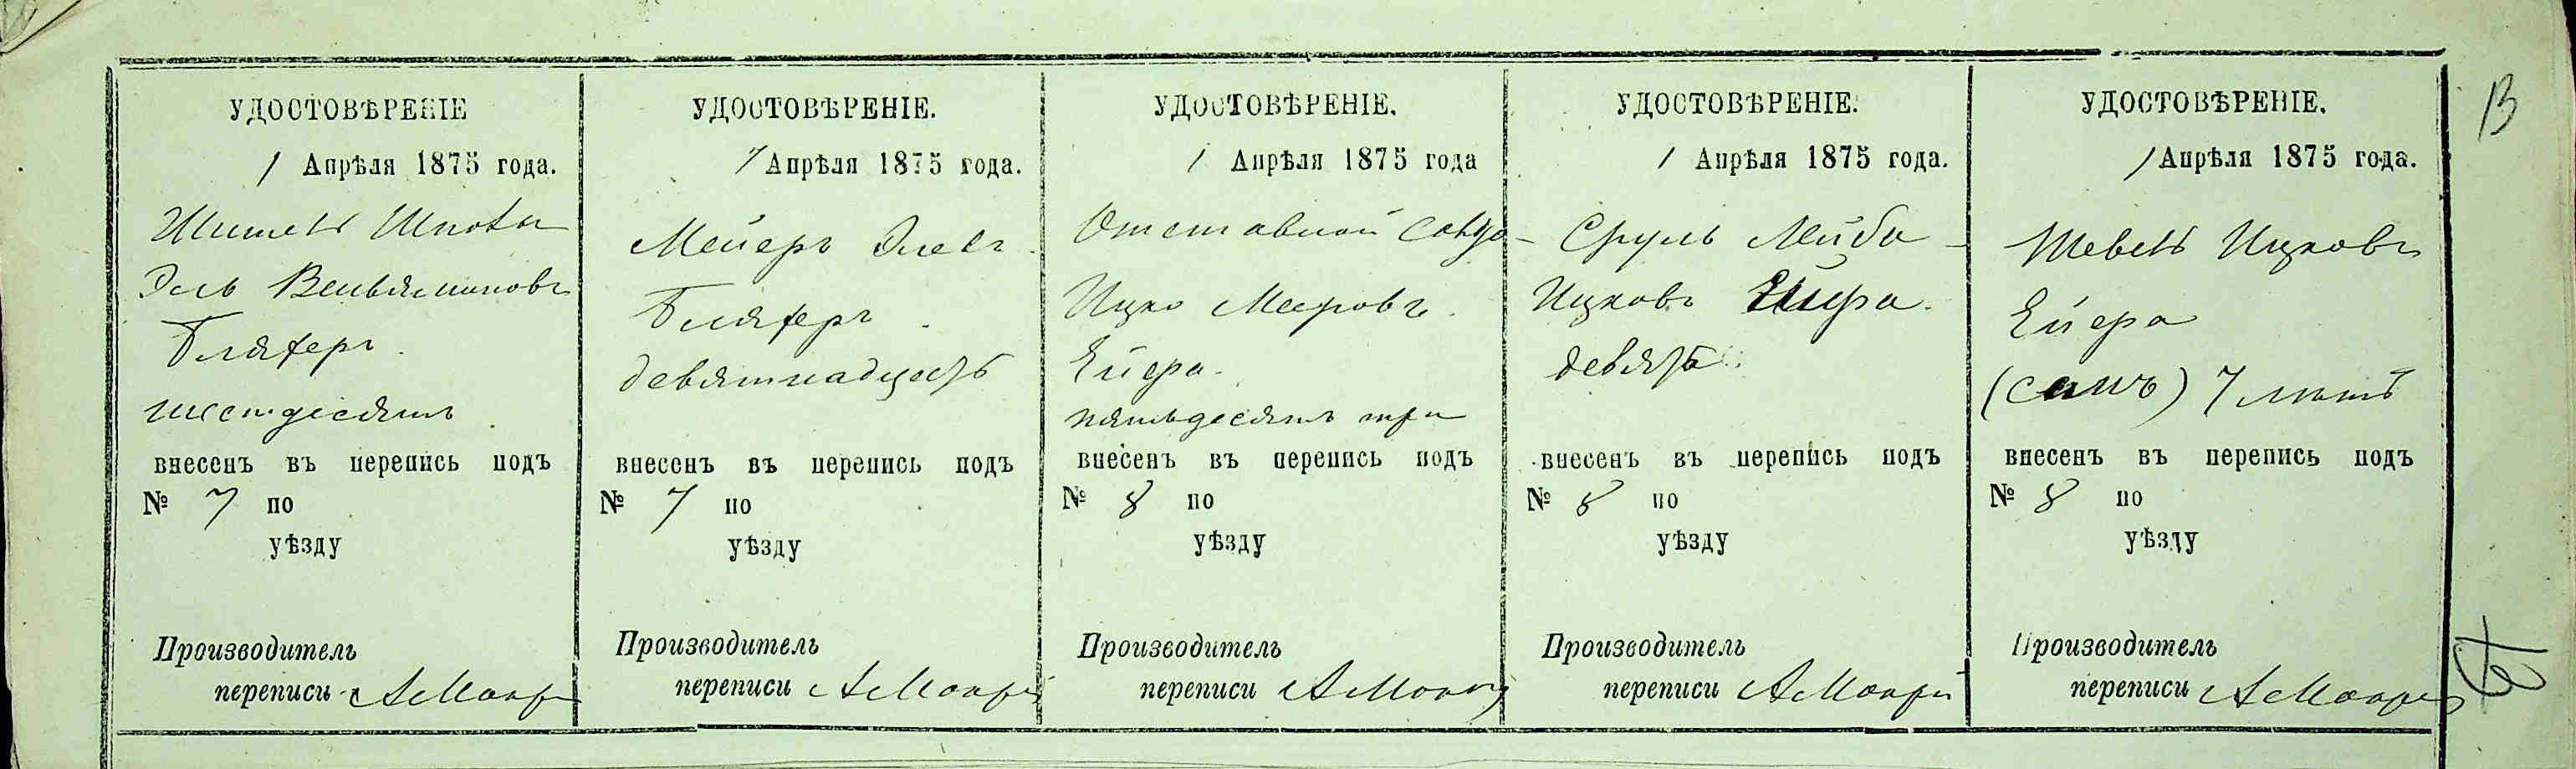 13
УДОСТОВѢРЕНІЕ
1 Апрѣля 1875 года.
Эль Веньяминовъ
Бляхеръ.
шестдесятъ
внесенъ въ перепись подъ
№ 7 по
уѣзду
Производитель
переписи
УДОСТОВѢРЕНІЕ.
1 Апрѣля 1875 года.
Мейеръ Элевъ
Бляхеръ.
девятнадцать
внесенъ въ перепись подъ
№ 7 по
уѣзду
Производитель
переписи
УДОСТОВѢРЕНІЕ.
1 Апрѣля 1875 года
Отставной солда-
Ицко Мееровъ.
Ейера.
пятьдесятъ три
внесенъ въ перепись подъ
№ 8 по
уѣзду
Производитель
переписи
УДОСТОВѢРЕНІЕ.
1 Апрѣля 1875 года.
Сруль Лейба -
Ицковъ Ейера.
девять
внесенъ въ перепись подъ
№ 8 по
уѣзду
Производитель
переписи
УДОСТОВѢРЕНІЕ.
1 Апрѣля 1875 года.
Шевель Ицковъ
Ейера
7 лѣтъ
внесенъ въ перепись подъ
№ 8 по
уѣзду
Производитель
переписи